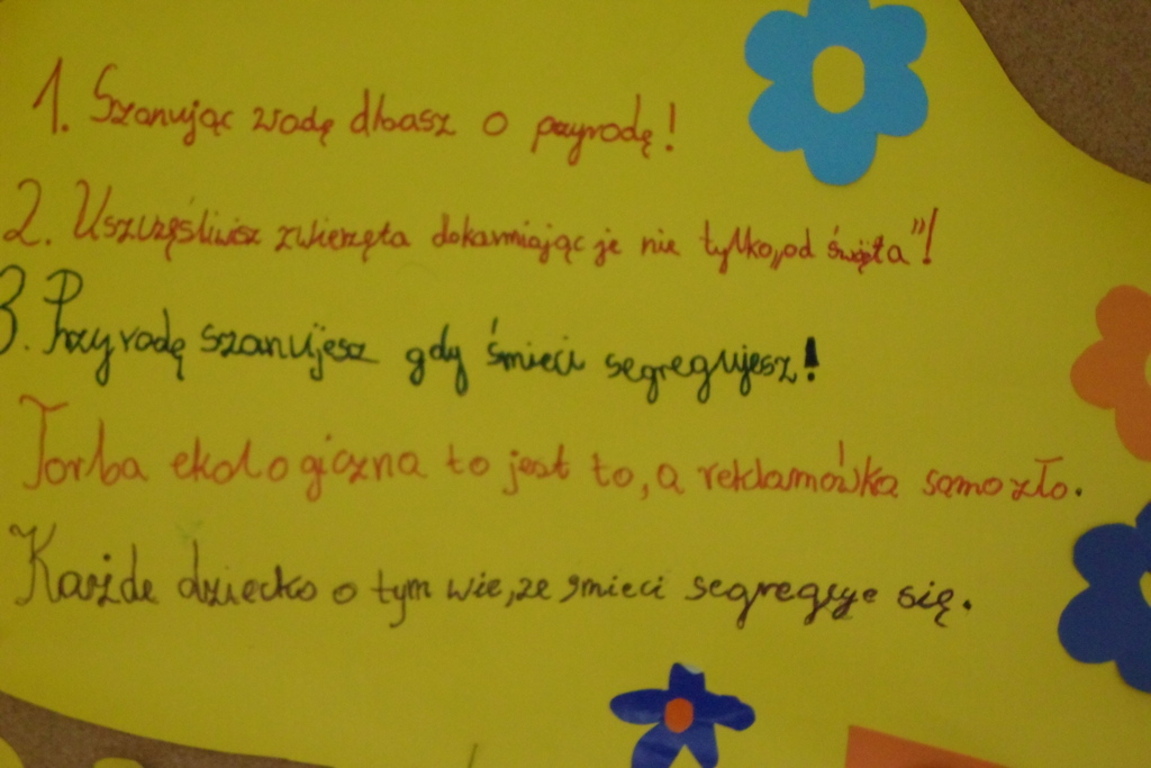 1. Szanując wodę dbasz o przyrodę!
2. Uszczęśliwisz zwierzęta dokarmiając je nie tylko „od święta”!
3. Przyrodę szanujesz gdy śmieci segregujesz!
Torba ekologiczna to jest to, a reklamówka samo zło.
Każde dziecko o tym wie, że śmieci segreguje się.